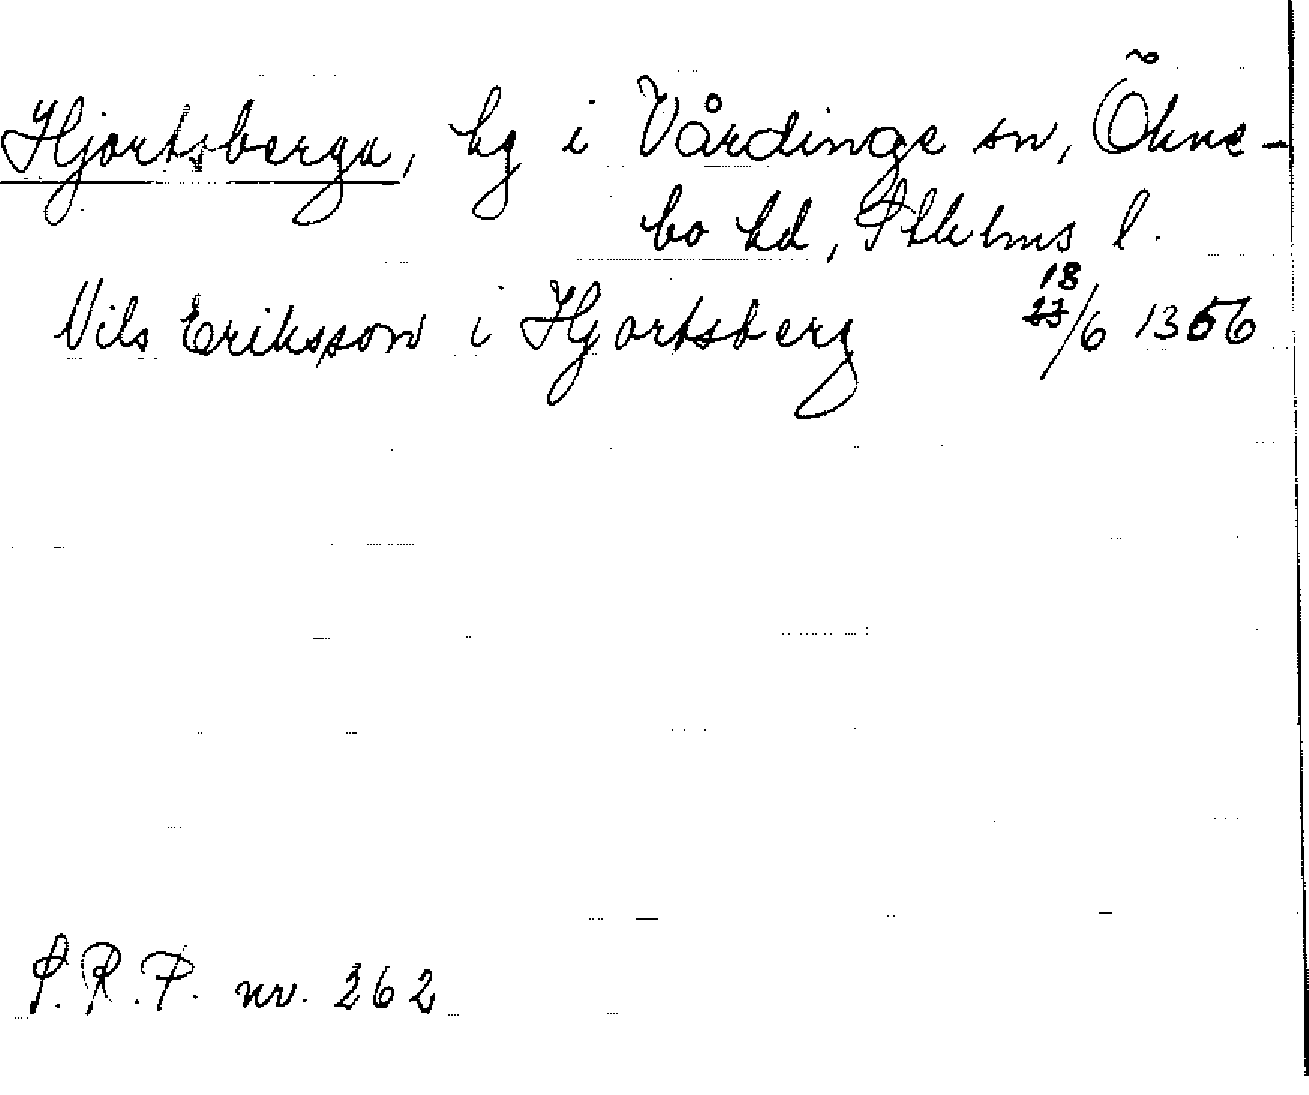 Hjortsberga, hg i Vårdinge sn, Ökne-
bo hd, Sthlms l.
Nils Eriksson i Hjortsberg 18/6 1356
S.R.P. nr. 362